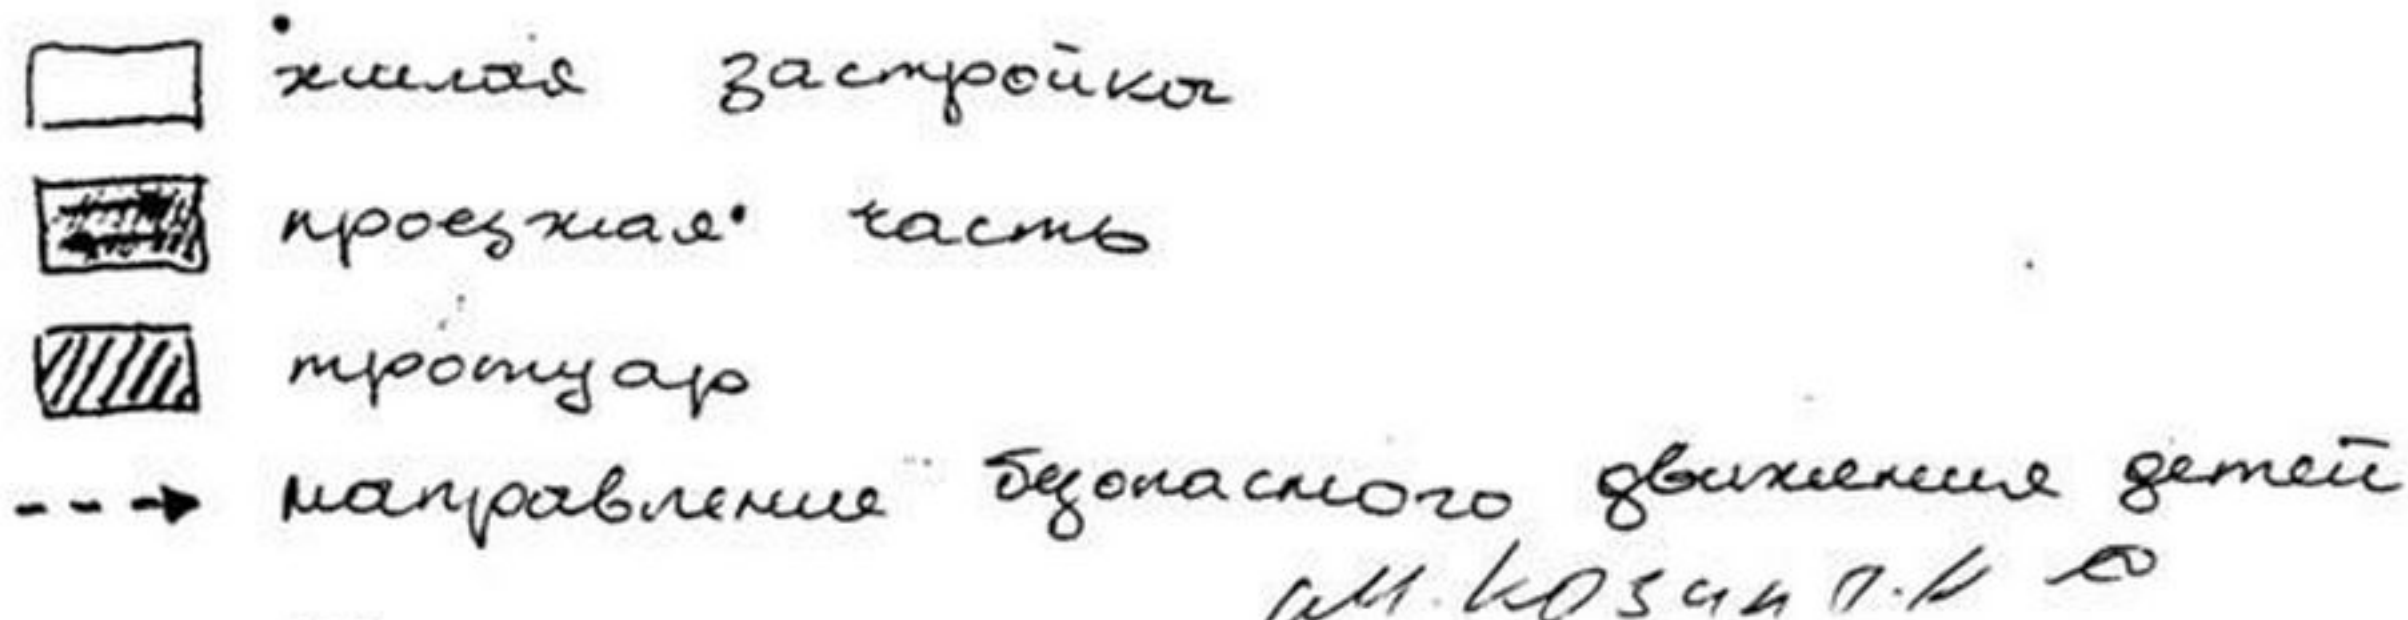 жилая застройка
проезжая часть
тротуар
направление безопасного движения детей
Козин